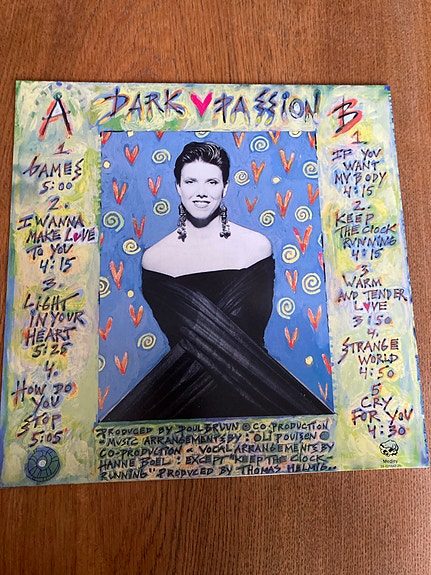 A
DARK PASSION
B
1.
GAMES
5:00
2.
I WANNA
MAKE LOVE
TO YOU
4:15
3.
LIGHT
IN YOUR
HEART
5:25
4.
HOW DO
YOU
STOP
5:05
1
IF YOU
WANT
MY BODY
4:15
2.
KEEP
THE CLOCK
RUNNING
4:15
3
WARM
AND TENDER
LOVE
3:50
4.
STRANGE
WORLD
4:50
5
CRY
FOR YOU
4:30
PRODUCED BY POUL BRUUN CO PRODUCTION
MUSIC ARRANGEMENTS BY: OLI POULSEN
CO-PRODUCTION VOCAL ARRANGEMENTS BY
HANNE BOEL: EXCEPT "KEEP THE CLOCK
RUNNING" PRODUCED BY THOMAS HELMIG..
Medley